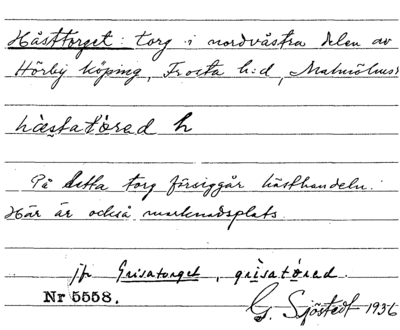 Hästtorget: torg i nordvästra delen av
Hörby köping, Frosta h:d, Malmöhus
hästatòred h
På detta torg försiggår hästhandeln.
Här är också marknadsplats.
jfr Grisatorget, grisatòred.
Nr 5558.
G. Sjöstedt 1936